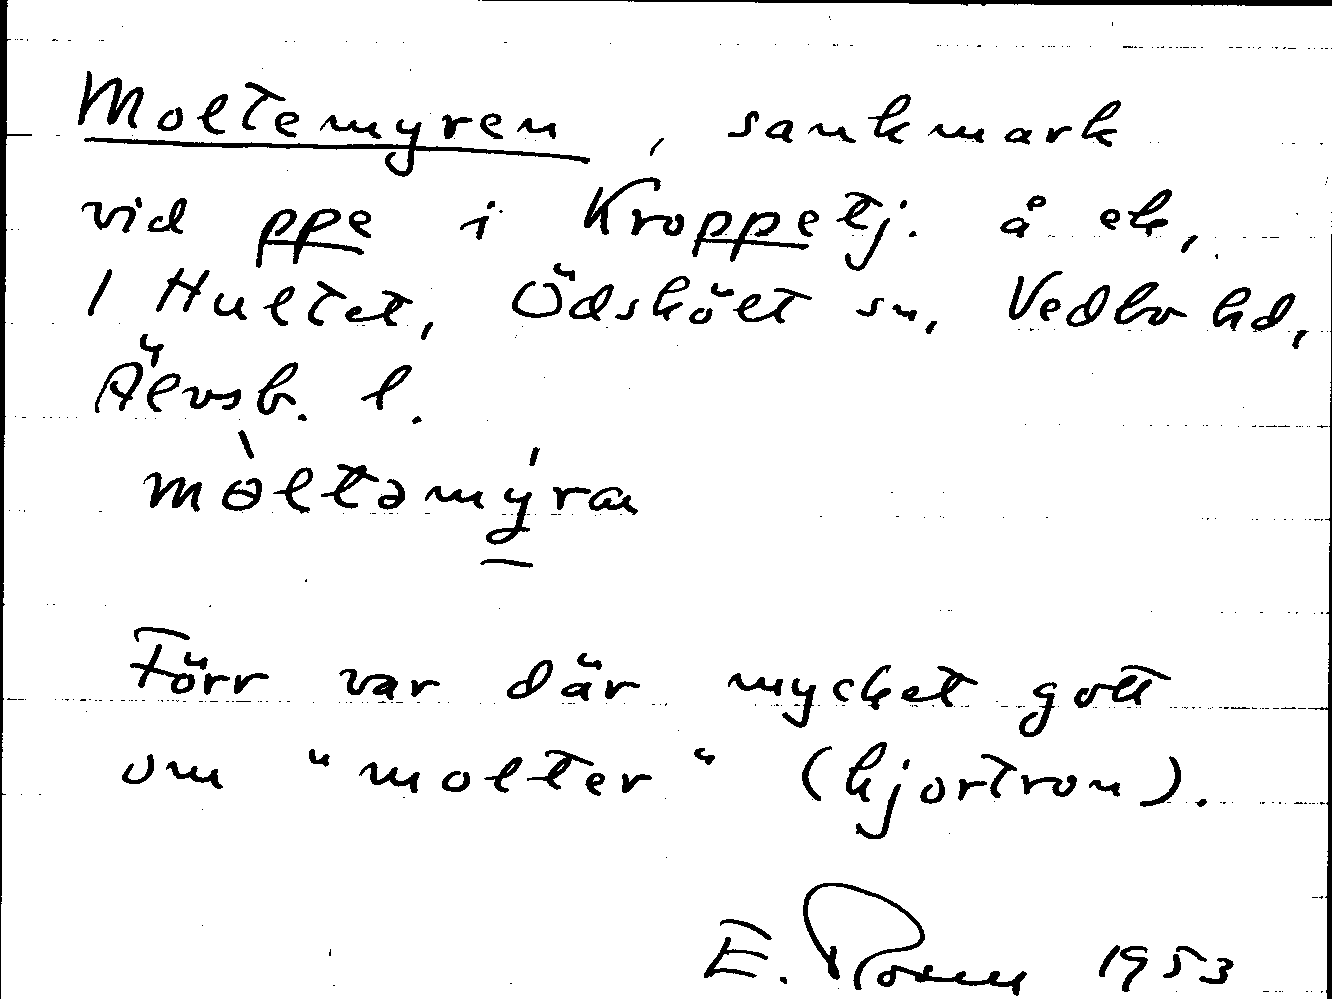 Moltemyren, sankmark
vid ppe i Kroppetj. å ek,
1 Hultet, Ödskölt sn, Vedbo hd,
Älvsb. l.
mòltəmýra
Förr var där mycket gott
om "molter" (hjortron).
E. 1953